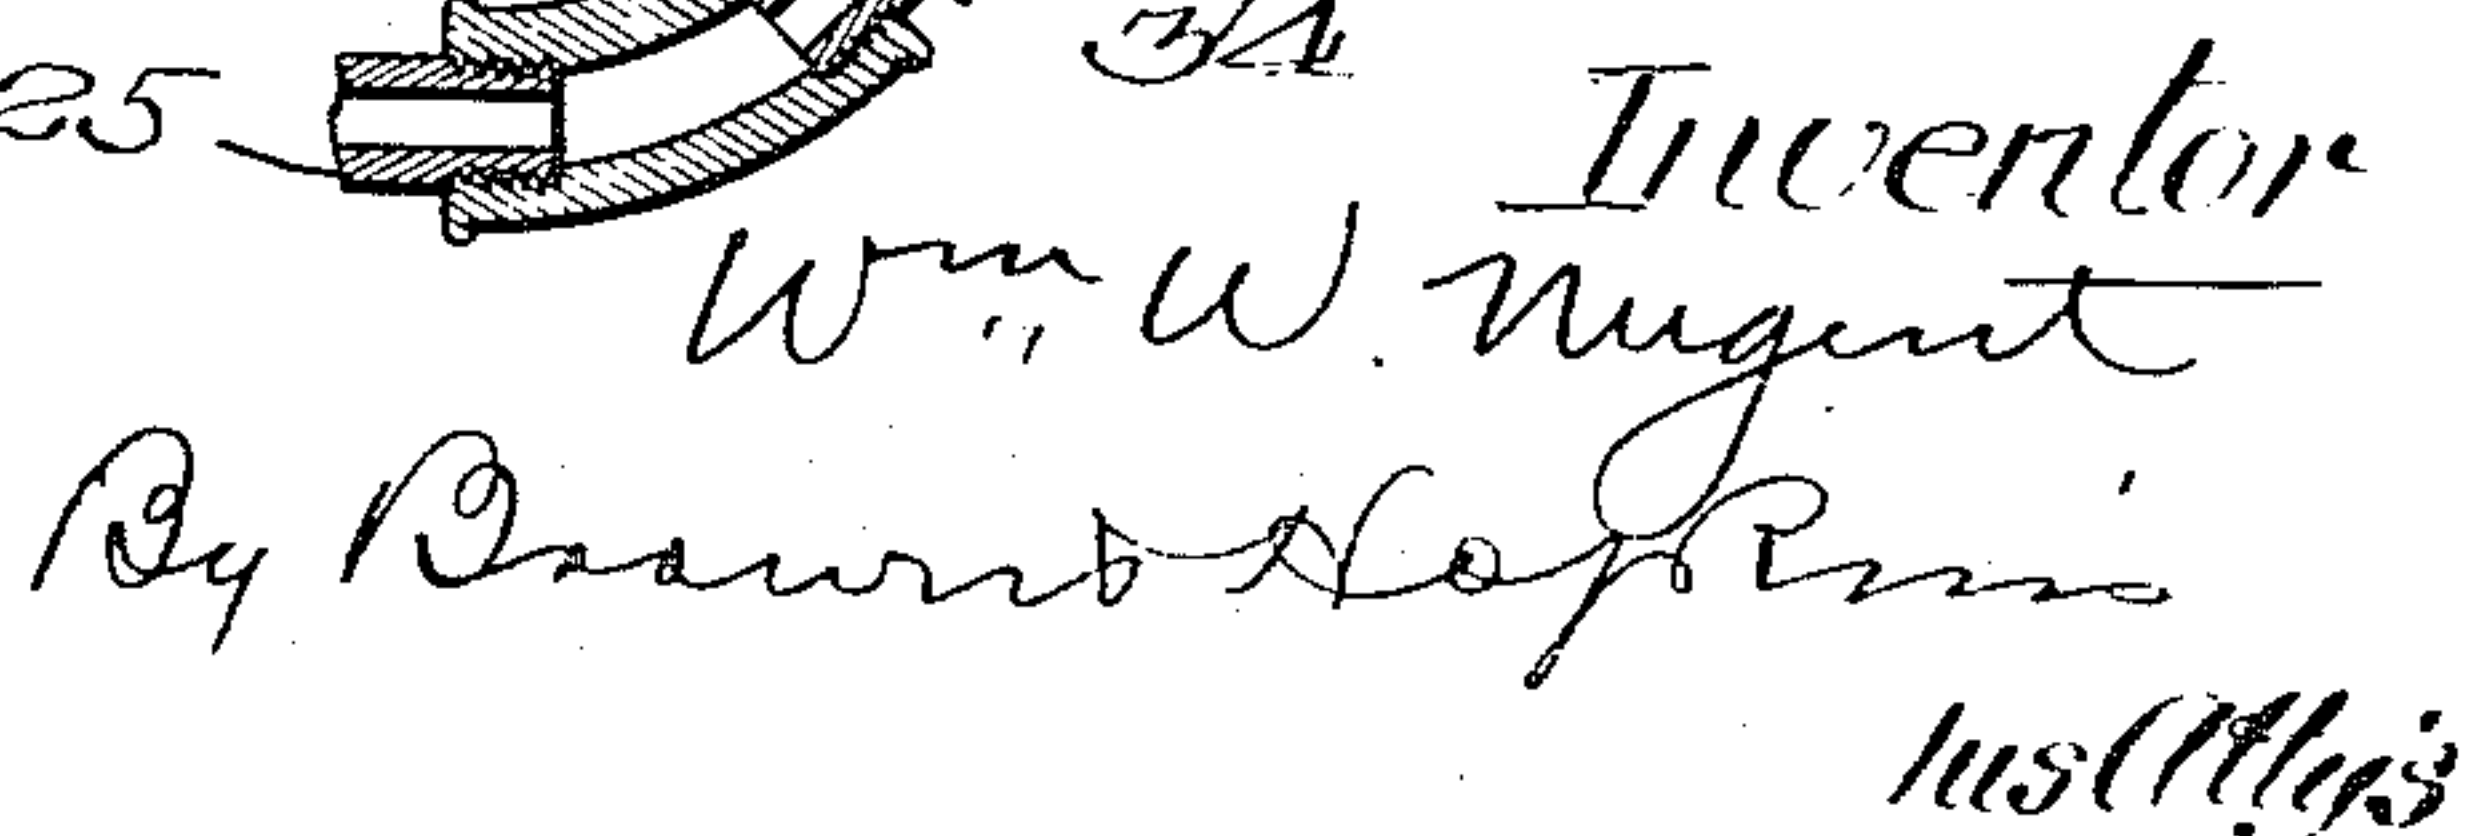 34
25
Inventor
Wm W. Nugent
By Brown & Hopkins
his Atty's